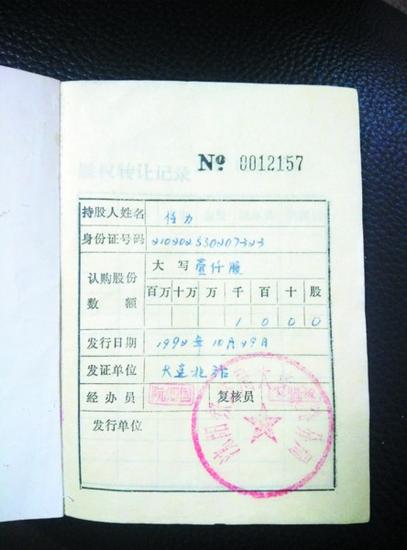 股权转让记录
Nº 0012157
持股人姓名 任力
身份证号码 210202530207323
认购股份数额 大写 壹仟股
百万 十万 万 千 百 十 股
1 0 0 0
发行日期 1992年10月29日
发证单位 大连北站
经办员 复核员
发行单位